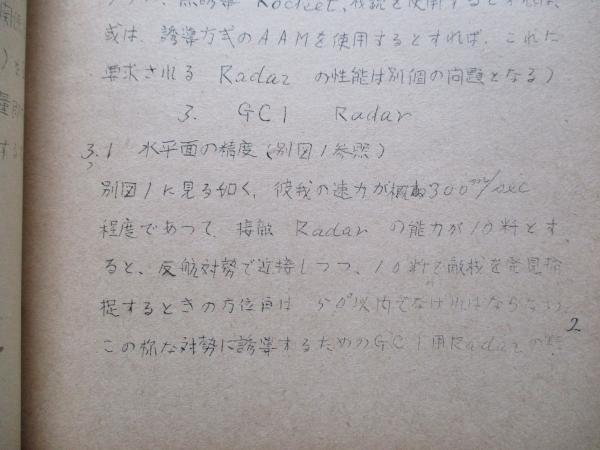 無誘導 Rocket, 機銃を使用するとすれば、
或は、誘導方式のAAMを使用するとすれば、これに
要求される Radar の性能は別個の問題となる)
3. GCI Radar
3.1 水平面の精度(別図1参照)
別図1に見る如く、彼我の速力が概ね300m/sec
程度であつて、接敵 Radar の能力が10粁とす
ると、反航対勢で近接しつつ、10粁で敵機を発見捕
捉するときの方位角は 50°以内でなければならない
この様な対勢に誘導するためのGCI用Radarの
2